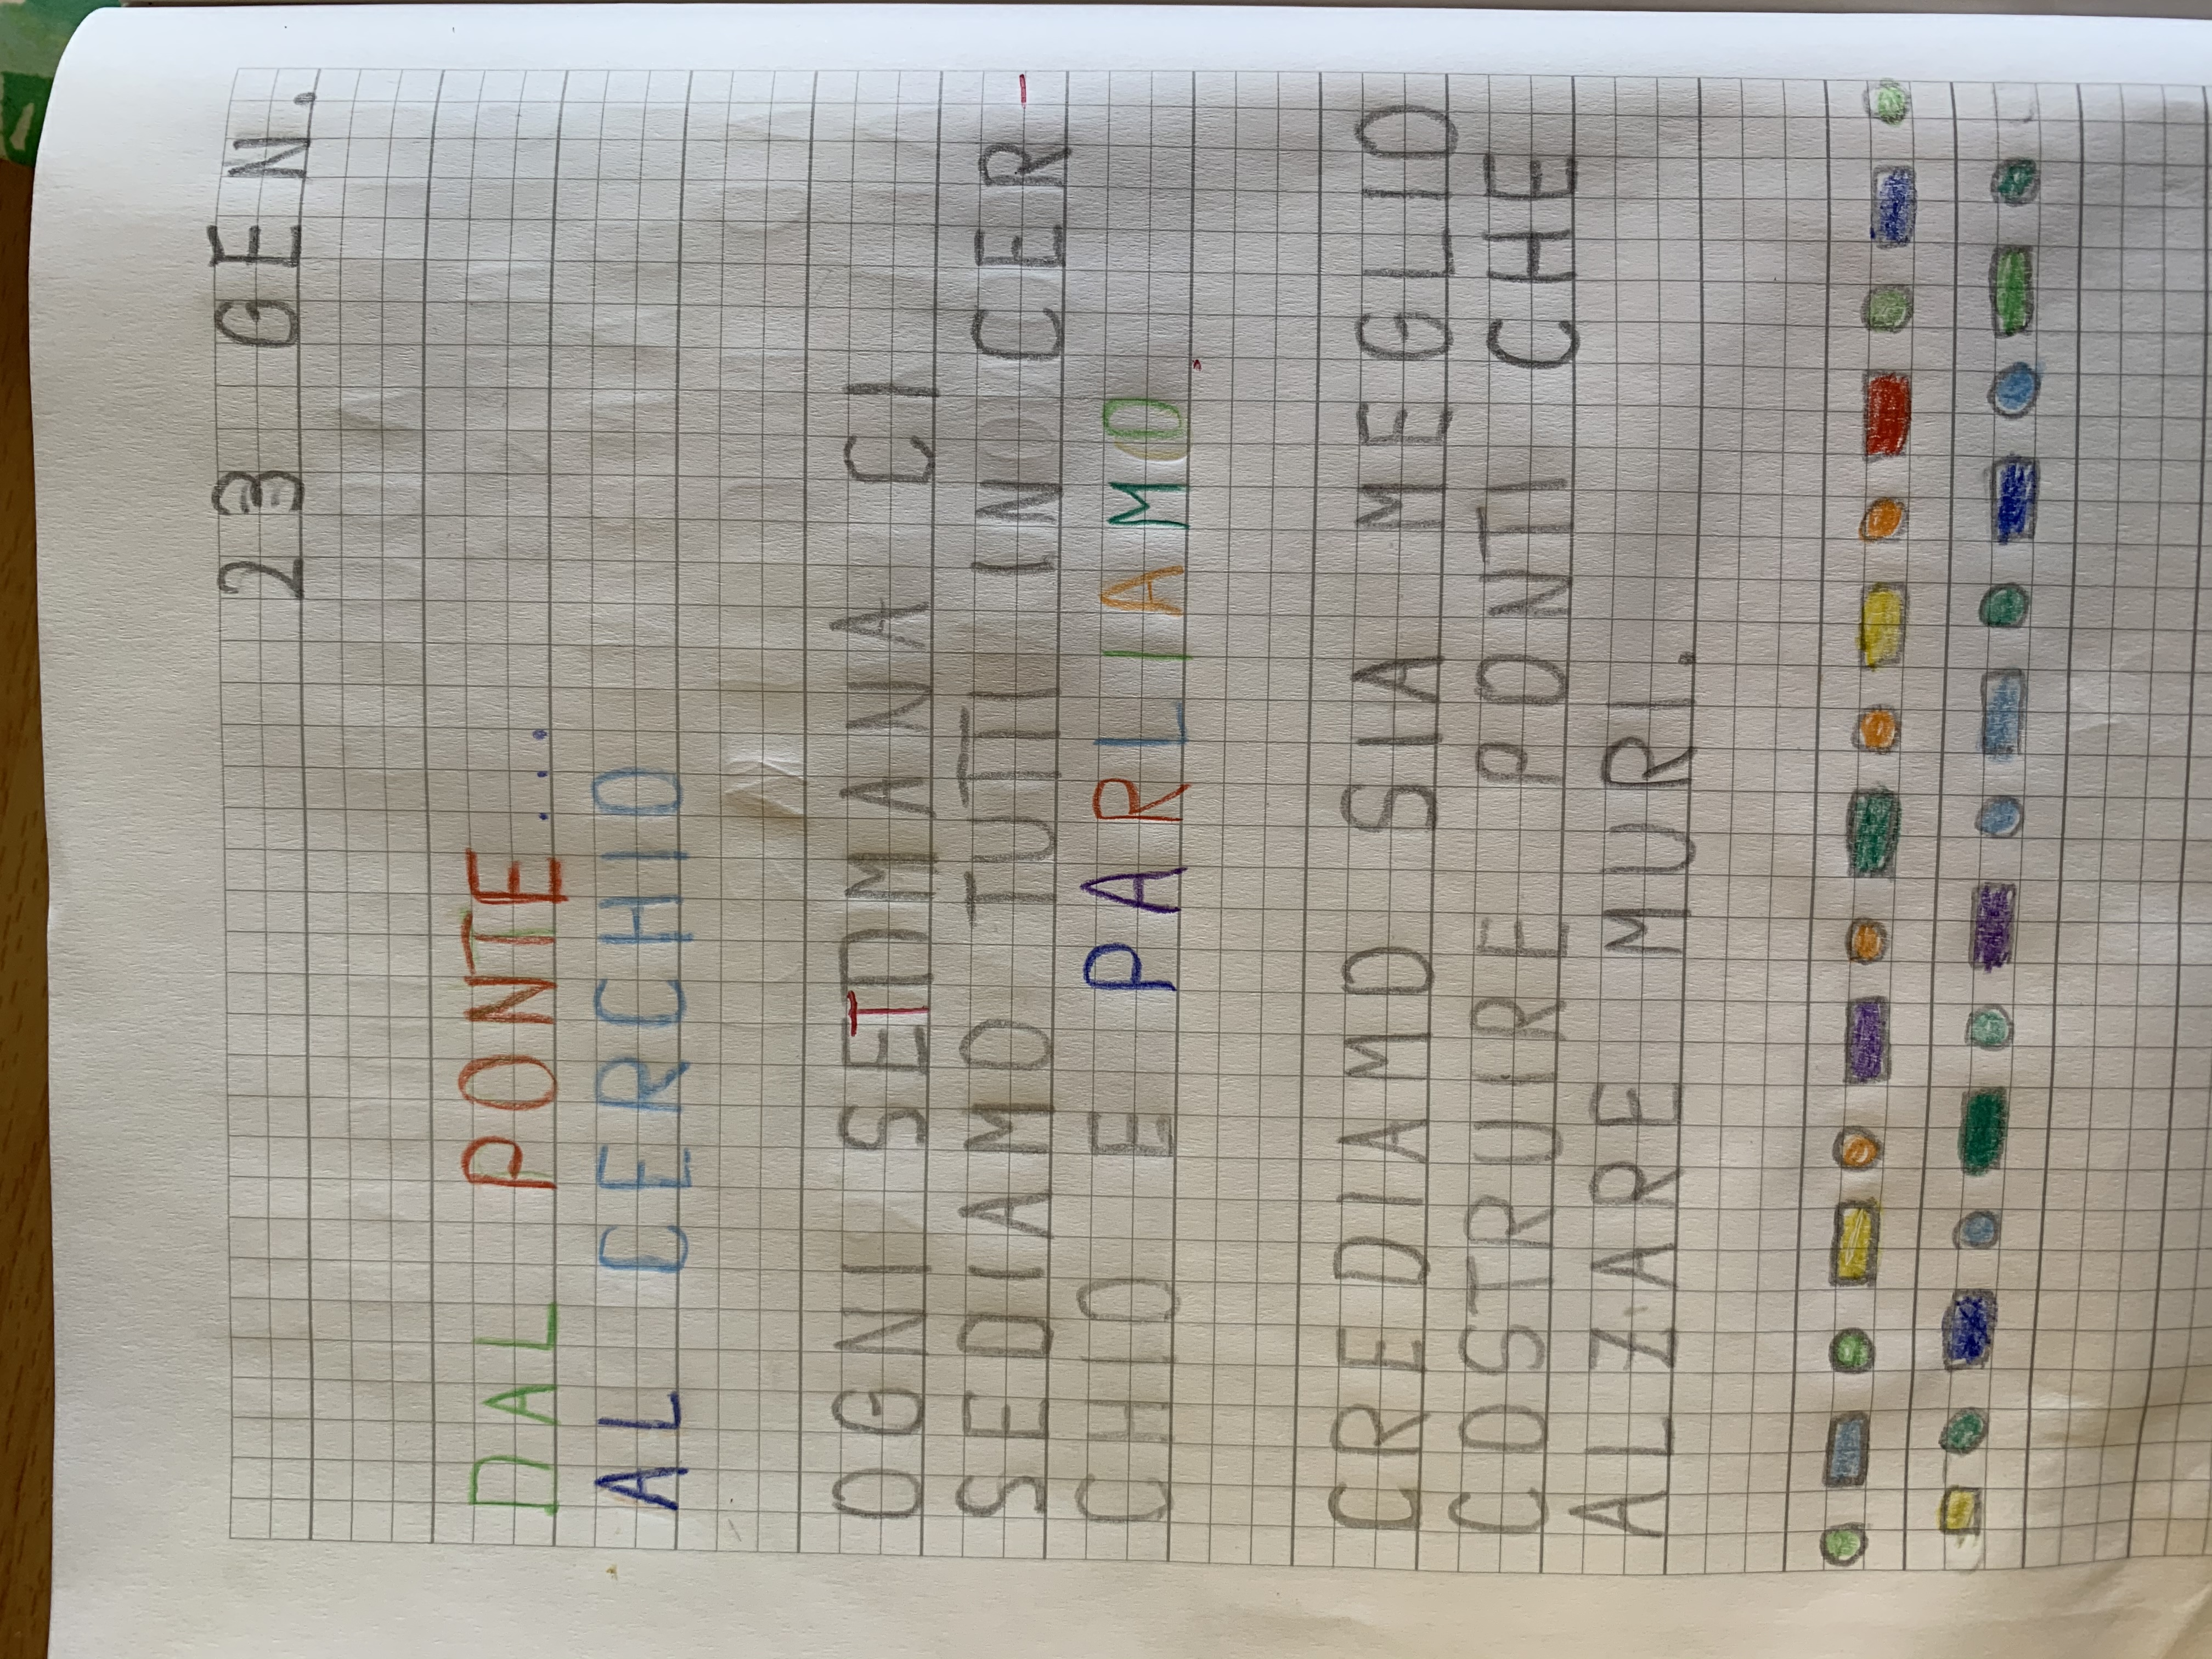 23 GEN.
DAL PONTE...
AL CERCHIO
OGNI SETDMANA CI
SEDIAMO TUTTI IN CER-
CHIO E PARLIAMO.
CREDIAMO SIA MEGLIO
COSTRUIRE PONTI CHE
ALZARE MURI.